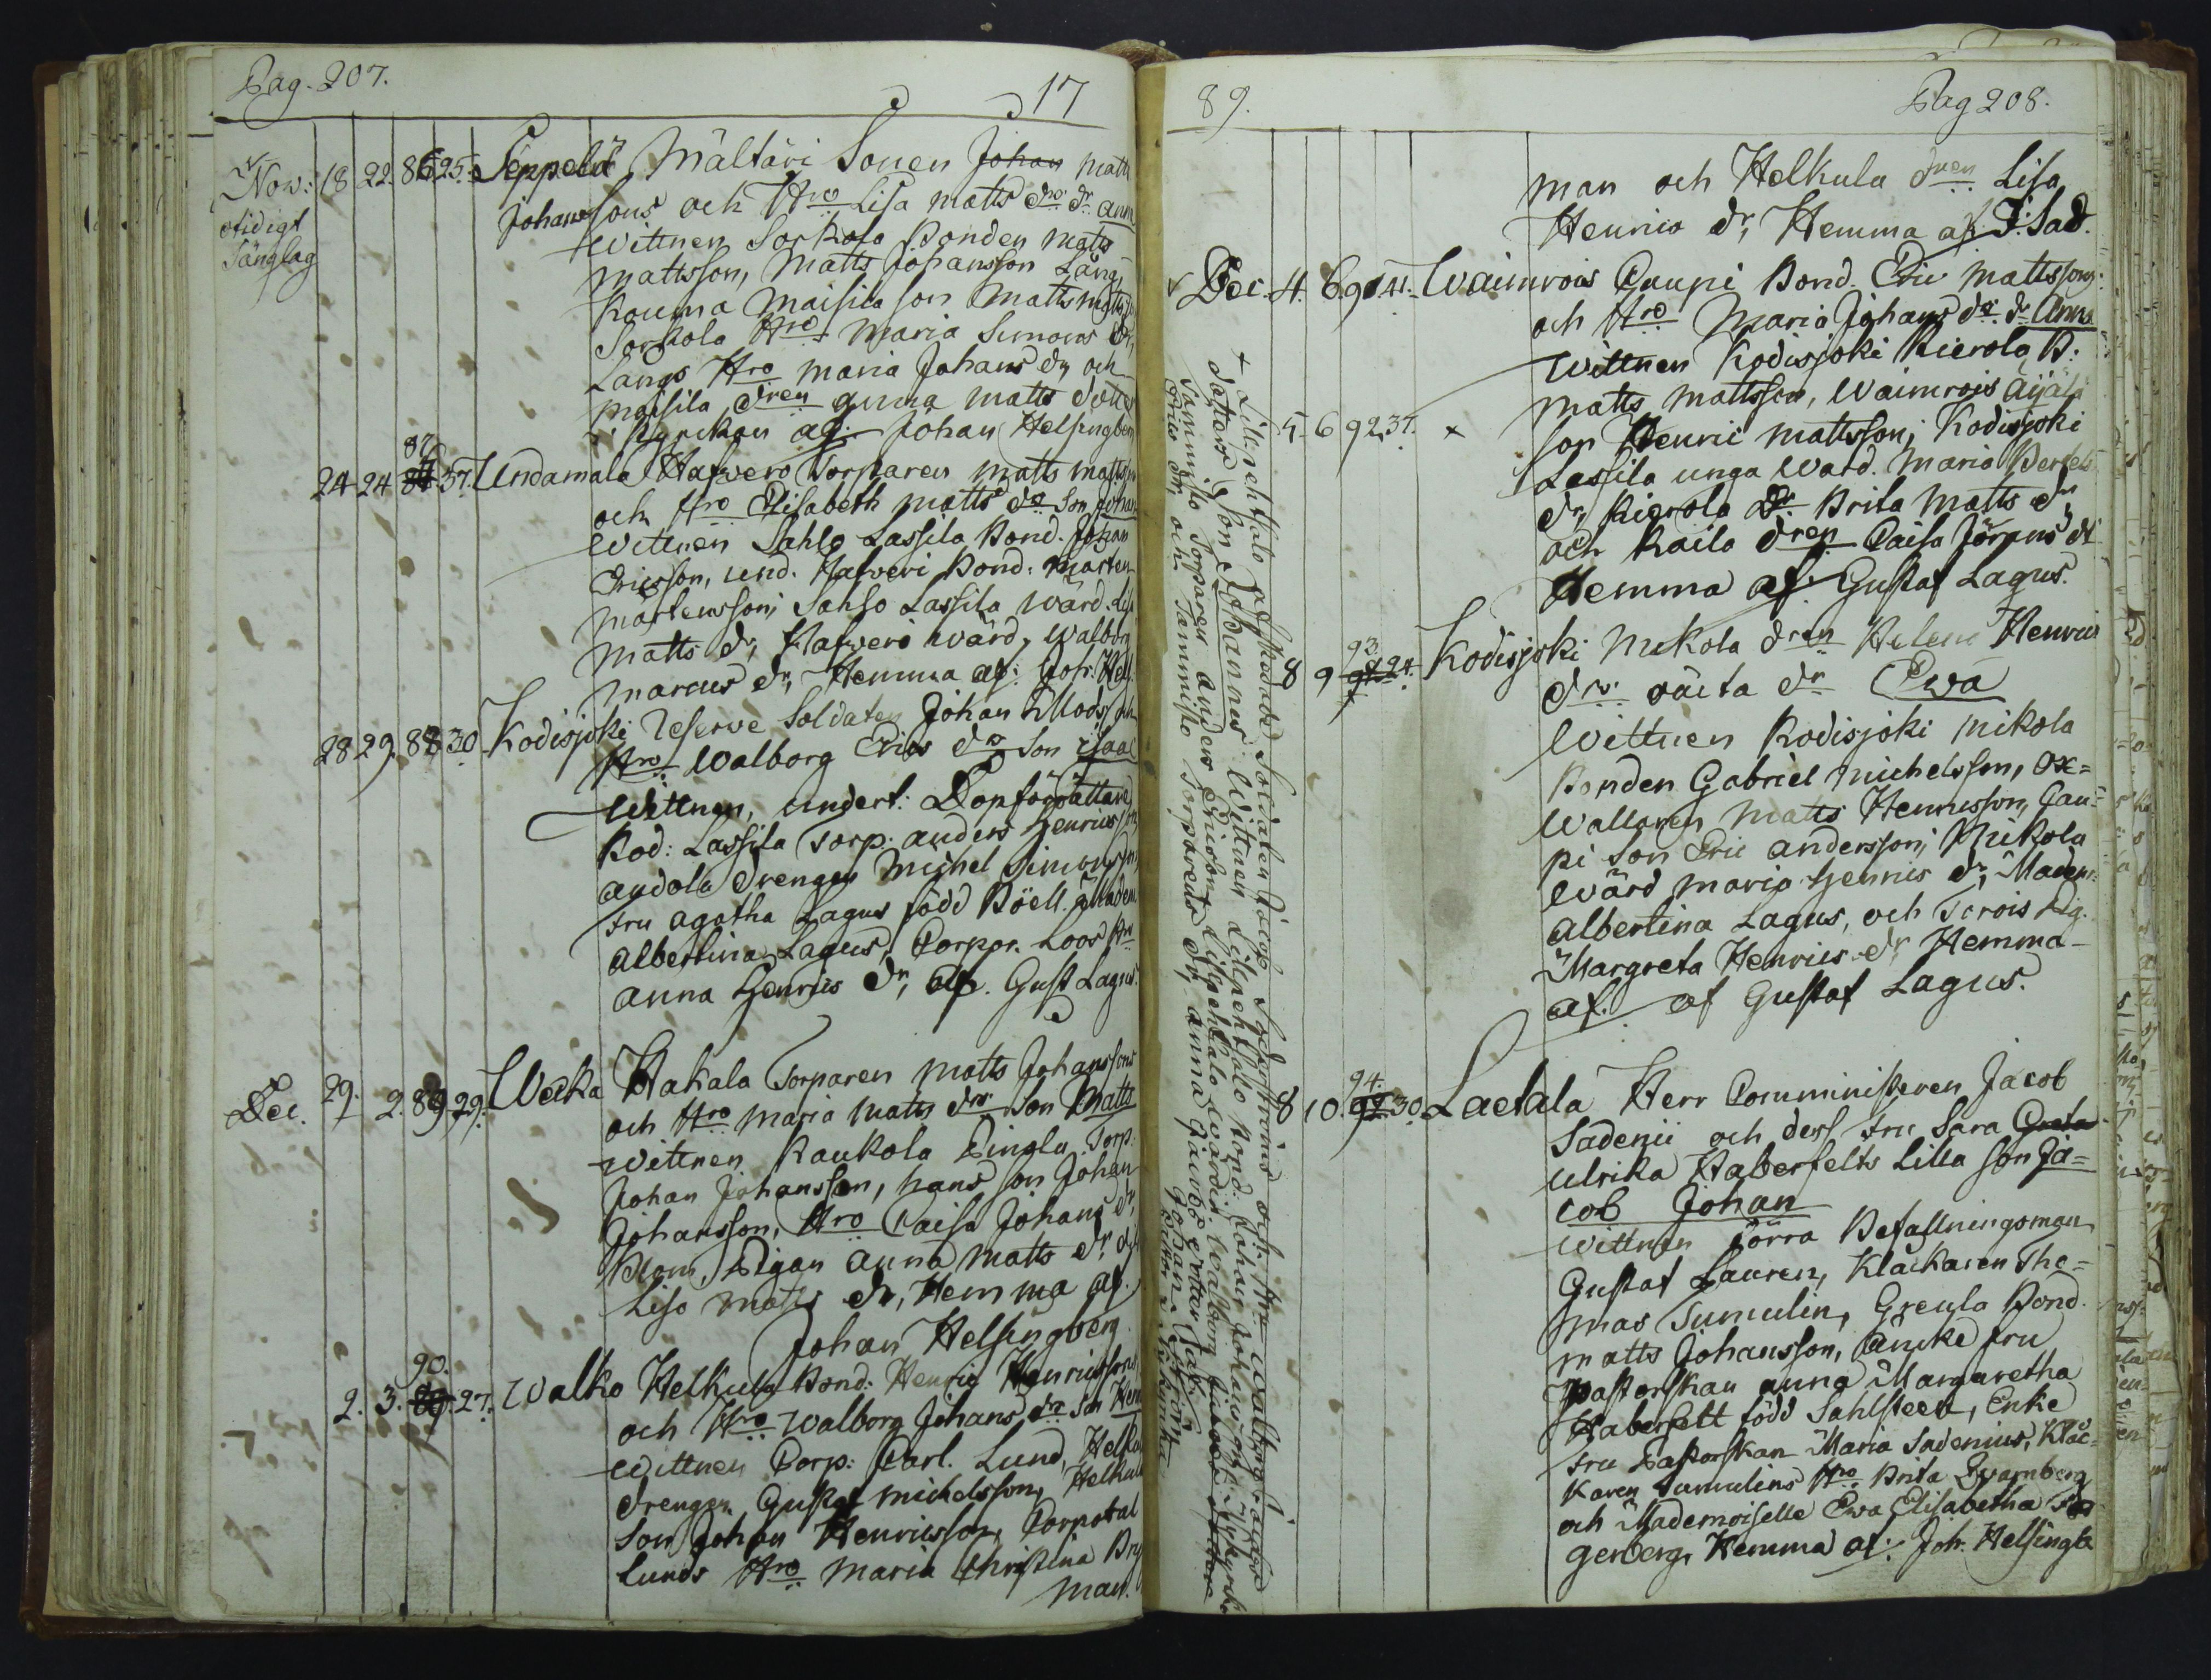 Pag. 207.
17
Now: 18 22. 86 25. Seppelä Mältäri Sonen Johan matts
otidigt
Sänglag
Johanssons och Hro Lisa matts dro dr anna
Wittnen Sorkola Bonden matts
mattsson, Matts Johansson Lång,
Kouma Maisila son Matts matts
Sorkola Hro Maria Simons dr,
Långs Hro maria Johans dr, och
maisila dren anna matts dotter
i Kyrckan af: Johan Helsingberg
87
24 24 37. Undamala Hafwero Torparen matts matts
och Hro Elisabeth matts dro Son Johan
Wittnen Sahlo Lassila Bond. Johan
Ericsson, und. Hafveri Bond: Mårten
Mårtensson, Sahlo Lassila Wärd. Lisa
Matts dr, Hafvero wärd, Walborg
Marcus dr, Hemma af: Joh. Hels.
28 29. 88 30. Kodisjoki Reserve Soldaten Johan Mods och
Hro Walborg Erics dro Son Isaac
Wittnen, undert: Dopförrättare
Kod: Lassila Torp. anders Henricsson,
andola drengen Michel Simonsson,
Fru agatha Lagus född Böell. Madem
Albertina Lagus, Corpor. Loos Hru
anna Henrics dr, af. Gust Lagus.
Dec. 29. 2. 89 29. Wecka Hakala Torparen matts Johanssons
och Hro maria matts dro Son Matts
Wittnen Raukola Pingla Torp.
Johan Johansson, hans son Johan
Johansson, Hro Caisa Johans dr,
Pigan anna matts dr och
Lisa matts dr, Hemma af.
Johan Helsingberg.
90.
2. 3. 27. Walko Helkula Bond: Henric Henricssons
och Hro Walborg Johans dro son Hen
Wittnen Corp: Carl. Lund, Helku
drengen Gustaf michelsson, Helkula
Son Johan Henricsson, Corporal
Lunds Hro Maria Christina Bry
man.
89.
Pag 208.
man och Helkula dren Lisa
Henrics dr, Hemma af J: Sad.
Dec. 4. 6. 91 41. Waimrois Caupi Bond. Eric mattssons
och Hro Maria Johans dr. dr Anna
Wittnen Kodisjoki Kierola B:
Matts Mattsson, Waimrois Äijälä
son Henric mattsson, Kodisjoki
Lassila unga Ward. Maria Bertels
dr, Kierola Dr Brita Matts dr
och Raila dren Caisa Jörens dr
Hemma af Gustaf Lagus.
5. 6 92 37. x
x Lillpehtalo afskedade Soldaten Jacob och Hro Walborg Jacobs
dotters Son Johannes Wittnen Lilpehtalo Bond. Johan Johansson,
Sammisto Torparen anders Ericson, Lilpehtalo Wärdin. Walborg Jacobs dotter
Erics dr, och Tammisto Torparens dr, anna Jacobs dotter
93
8 9 24. Kodisjoki Mikola dren Helena Henrics
drs. oäcta dr Ewa
Wittnen Kodisjoki Mikola
Bonden Gabriel Michelsson, Ox=
wallaren Matts Henricsson, Cau=
pi Son Eric andersson, Mikola
Wärd maria Henrics dr, Madem:
Albertina Lagus, och Torois Pig.
Margreta Henrics dr Hemma
af. af Gustaf Lagus.
94.
8 10. 30. Lactala Herr Comministeren Jacob
Sadenii och dess Fru Sara Greta
Ulrika Haberfelts Lilla Son Ja=
cob Johan
Wittnen förra Befallningsman
Gustaf Lauren, Klackaren Tho=
mas Sumulin, Greula Bond.
Matts Johansson, Äncke fru
Pastorskan anna Margaretha
Haberfelt född Sahlsteen, Enke
Fru Pastorskan Maria Sadenius, Klac=
karen Sumulins Hro Brita Qvarnberg
och Mademoiselle Ewa Elisabetha
gerberg, Hemma af: Joh. Helsingb